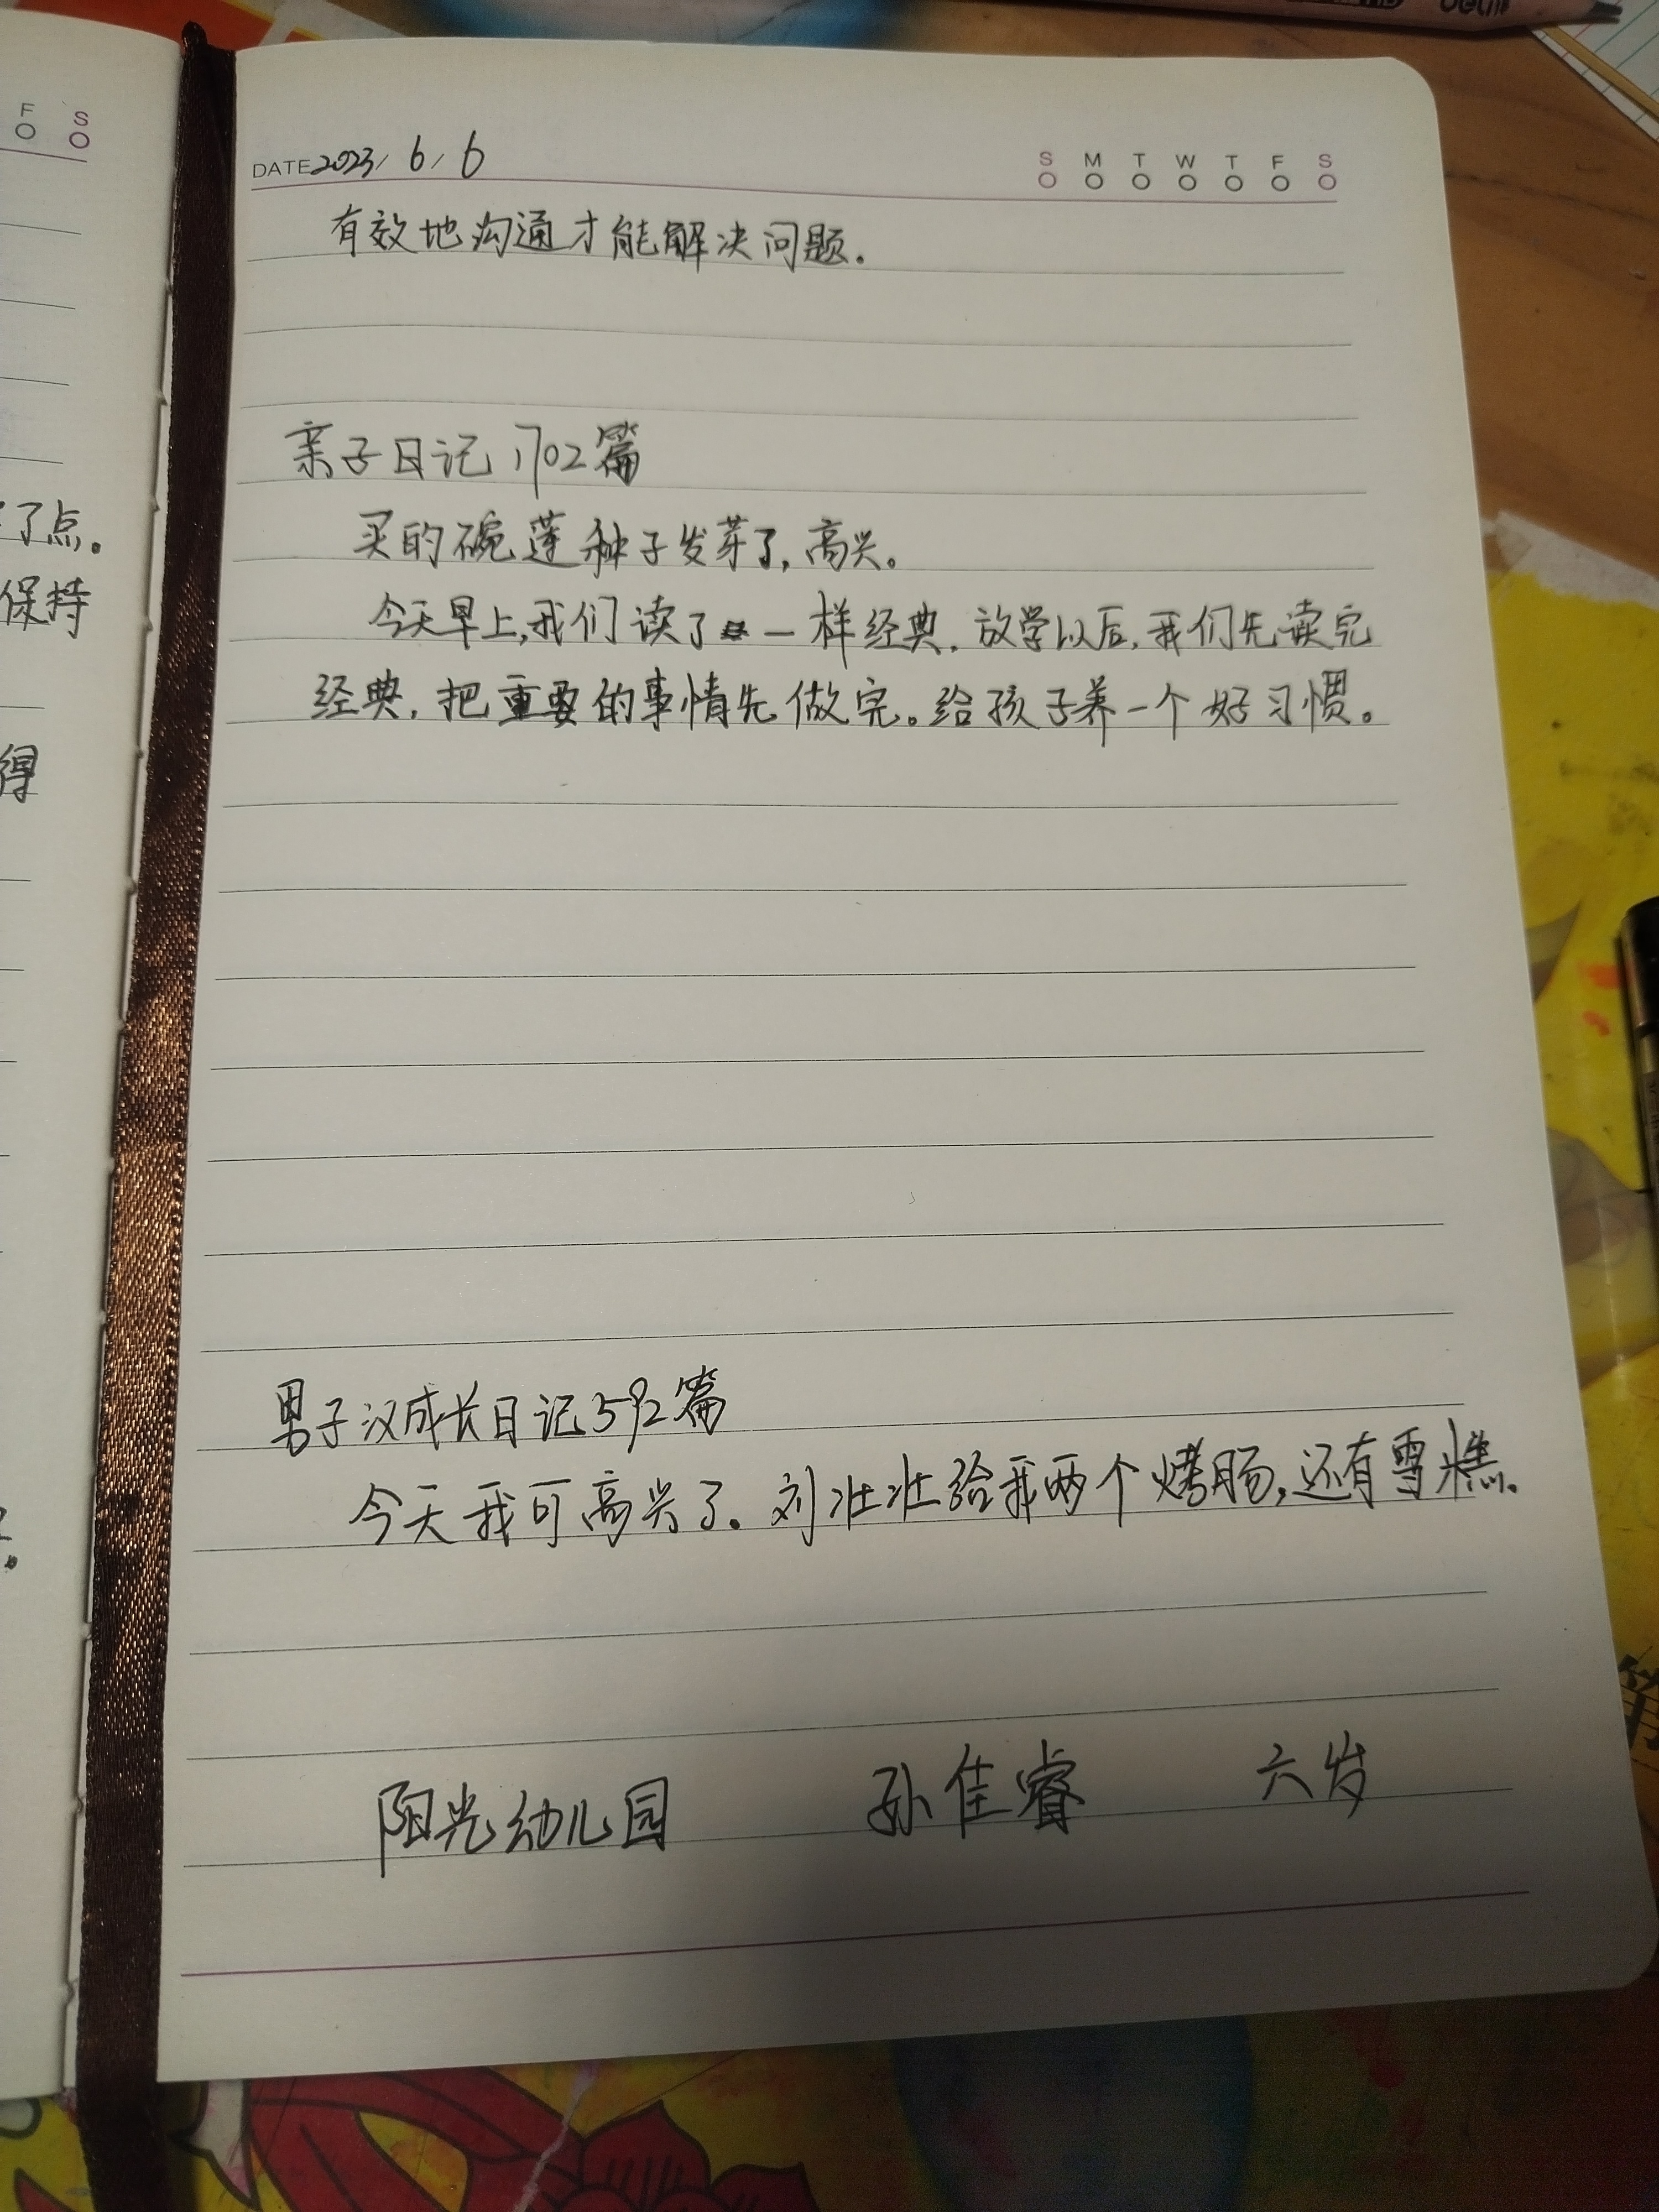 F S
了点。
保持
得
DATE 2023/ 6/ 6
S M T W T F S
有效地沟通才能解决问题.
亲子日记1702篇
买的碗莲种子发芽了,高兴。
今天早上,我们读了一样经典. 放学以后,我们先读完
经典, 把重要的事情先做完。给孩子养一个好习惯。
男子汉成长日记592篇
今天我可高兴了。刘壮壮给我两个烤肠,还有雪糕。
阳光幼儿园 孙佳睿 六岁